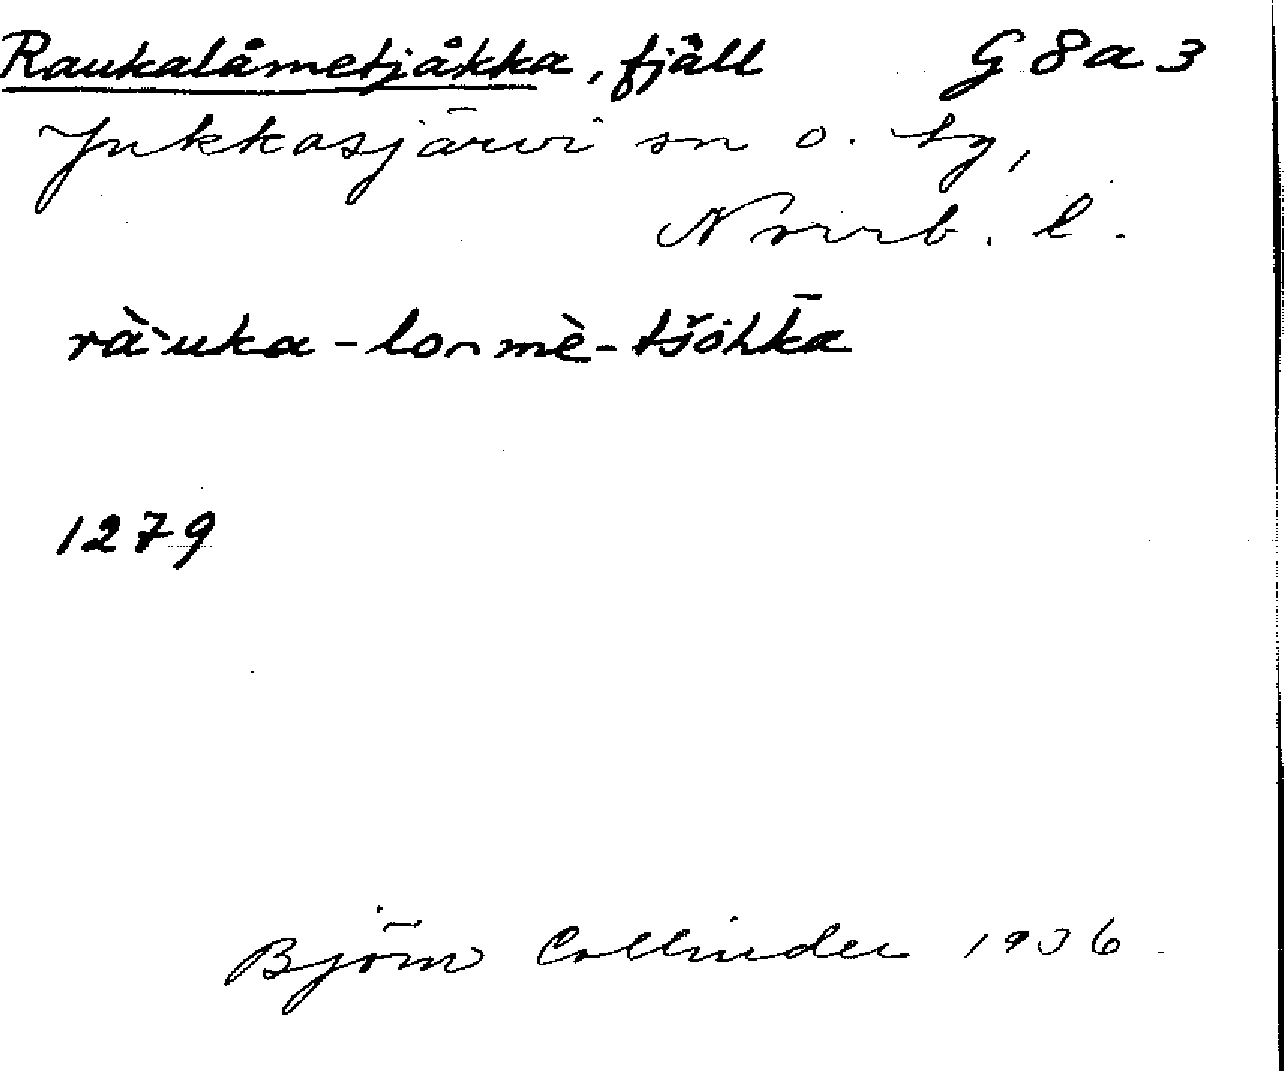 Raukalåmetjåkka, fjäll G8a3
Jukkasjärvi sn o. tg,
Norrb. l.
rà̀uka-lonmè-tšohk̄a
1279
Björn Collinder 1936